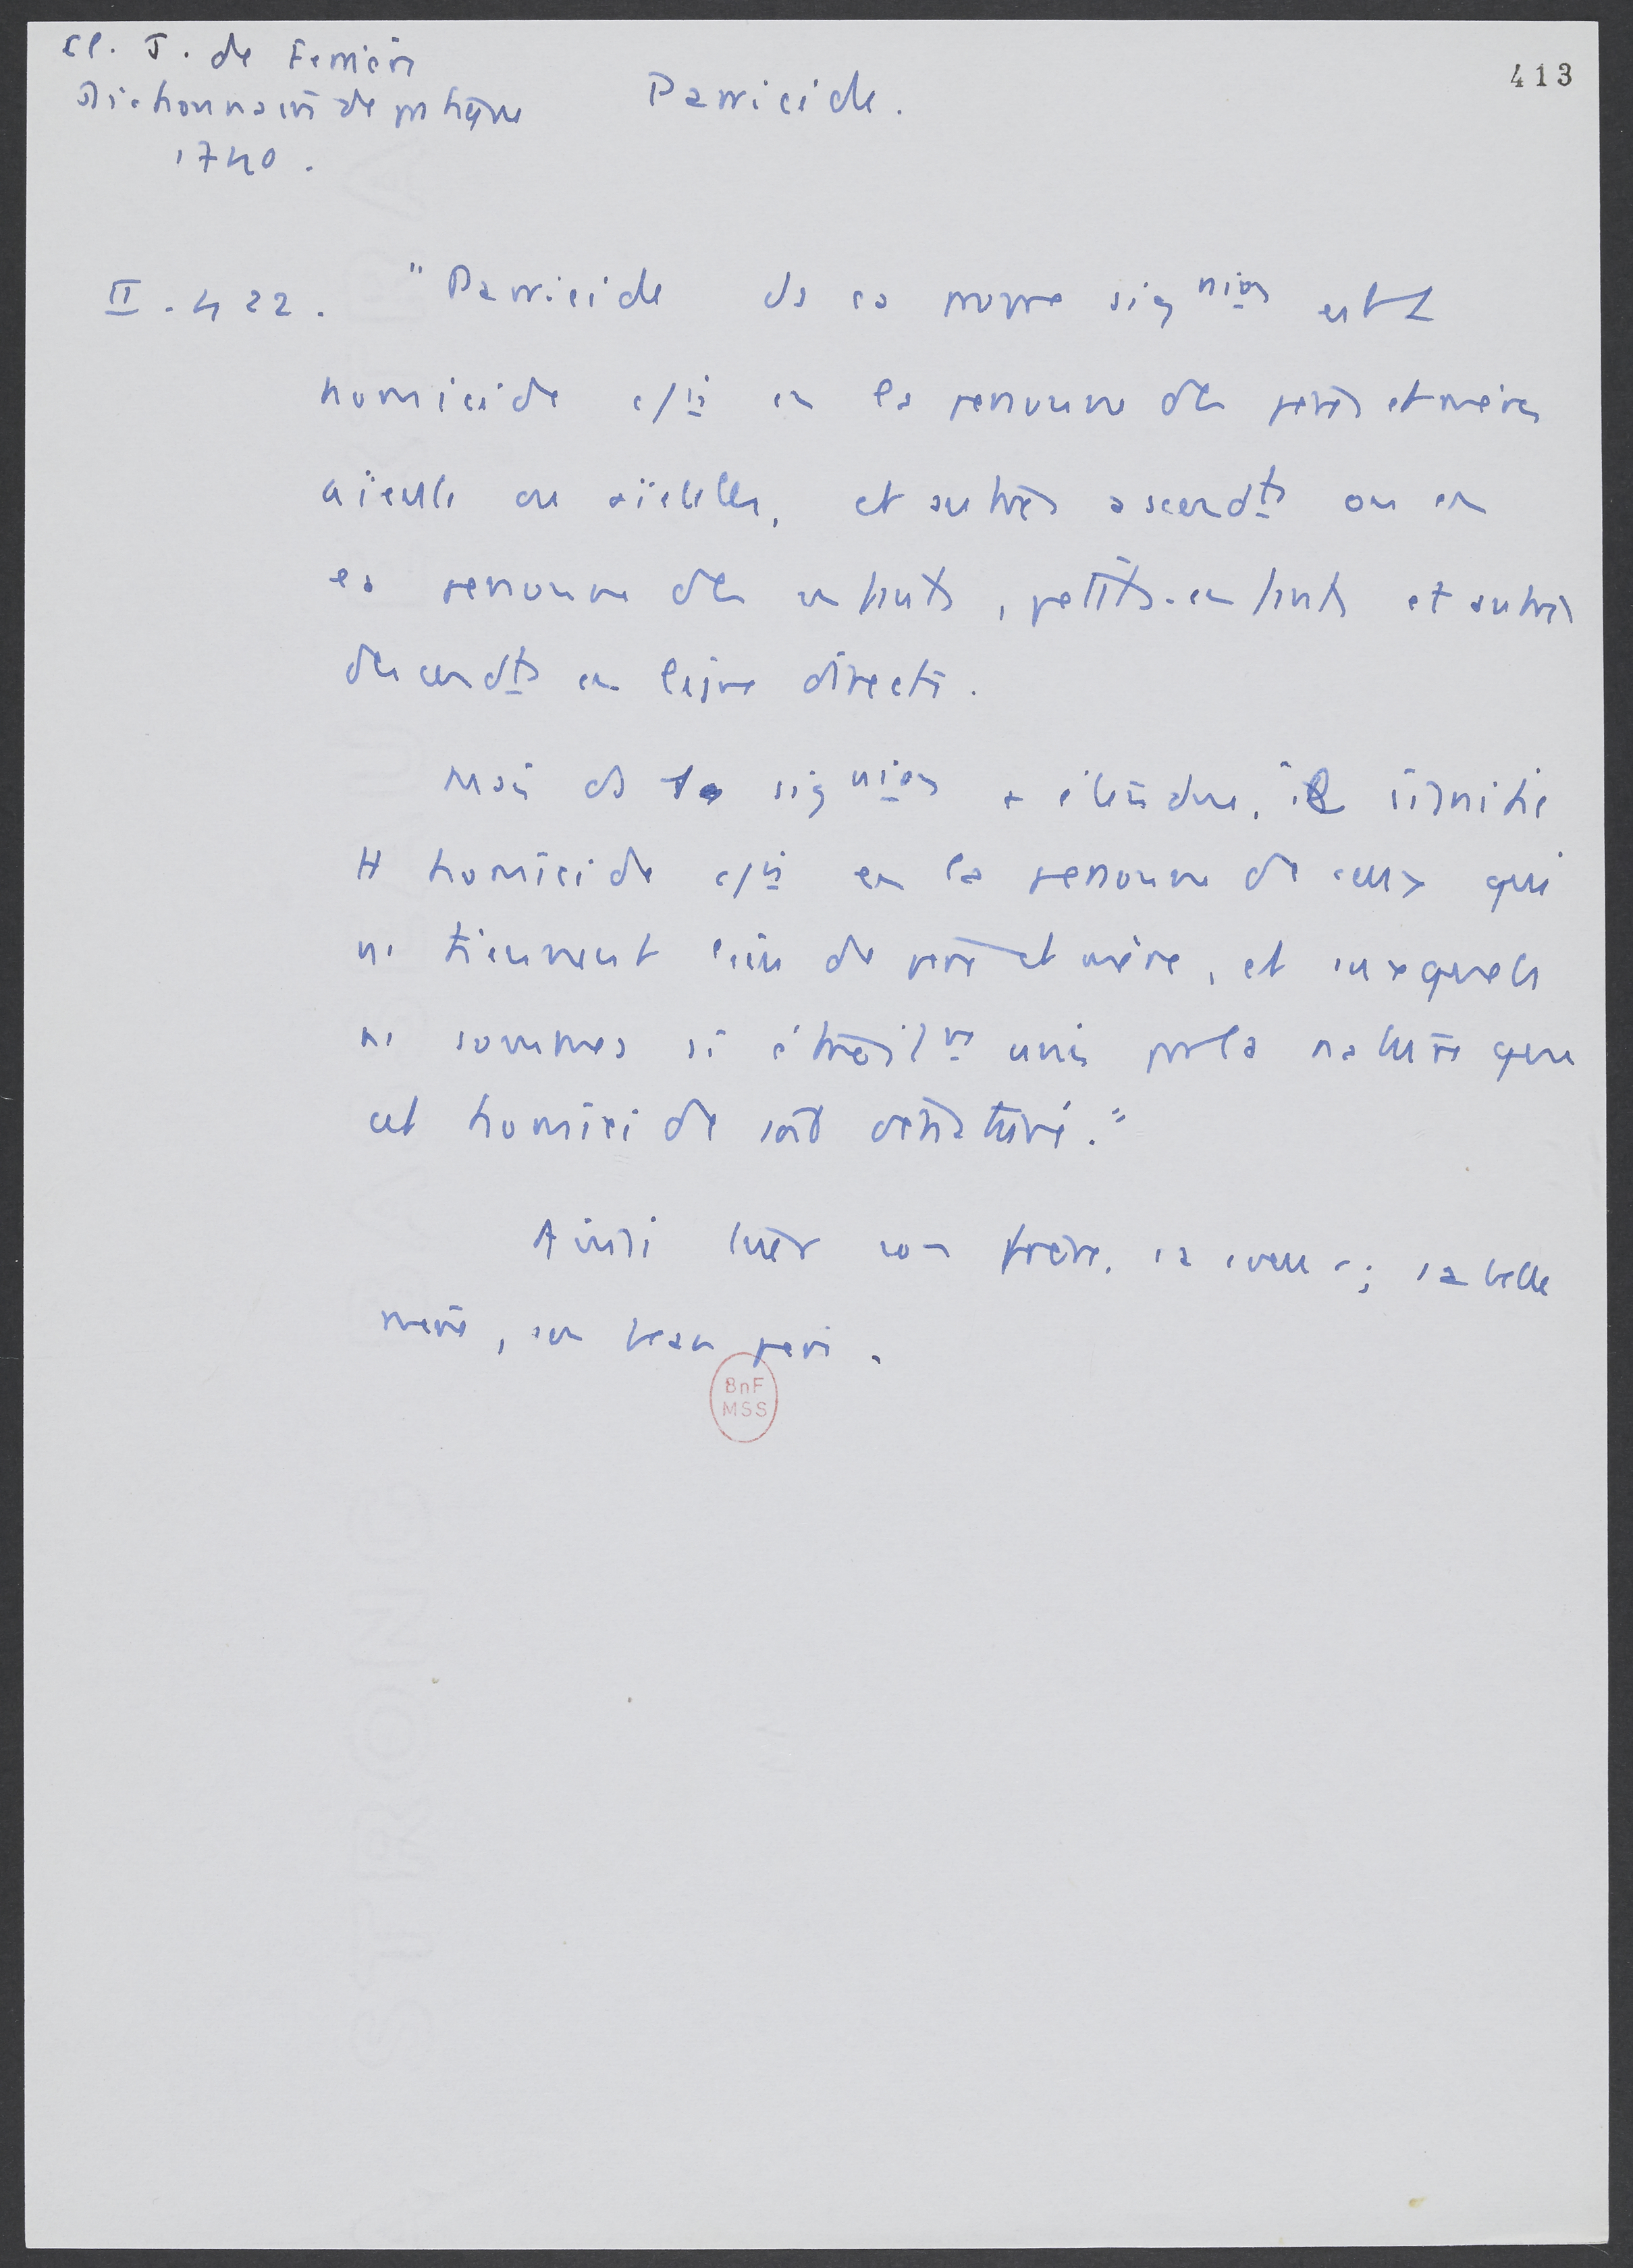 413
Cl. J. de Ferrière
Dictionnaire de pratique
1740.
Parricide.
II. 422. "Parricide ds sa propre sig nion est l
homicide c/is en la personne des pères et mères
aieuls ou aïeules, et autres ascendts ou en
la personne des enfants, petits-enfants et autres
descendts en ligne directe.
Mais ds la sig nion + étendue, il signifie
tt homicide c/is en la personne de ceux qui
ns tiennent lieu de père et mère, et auxquels
ns sommes si étroit nt unis par la nature que
cet homicide soit dénaturé."
Ainsi tuer son frère, sa soeur; sa belle
mère, son beau père.
BnF
MSS